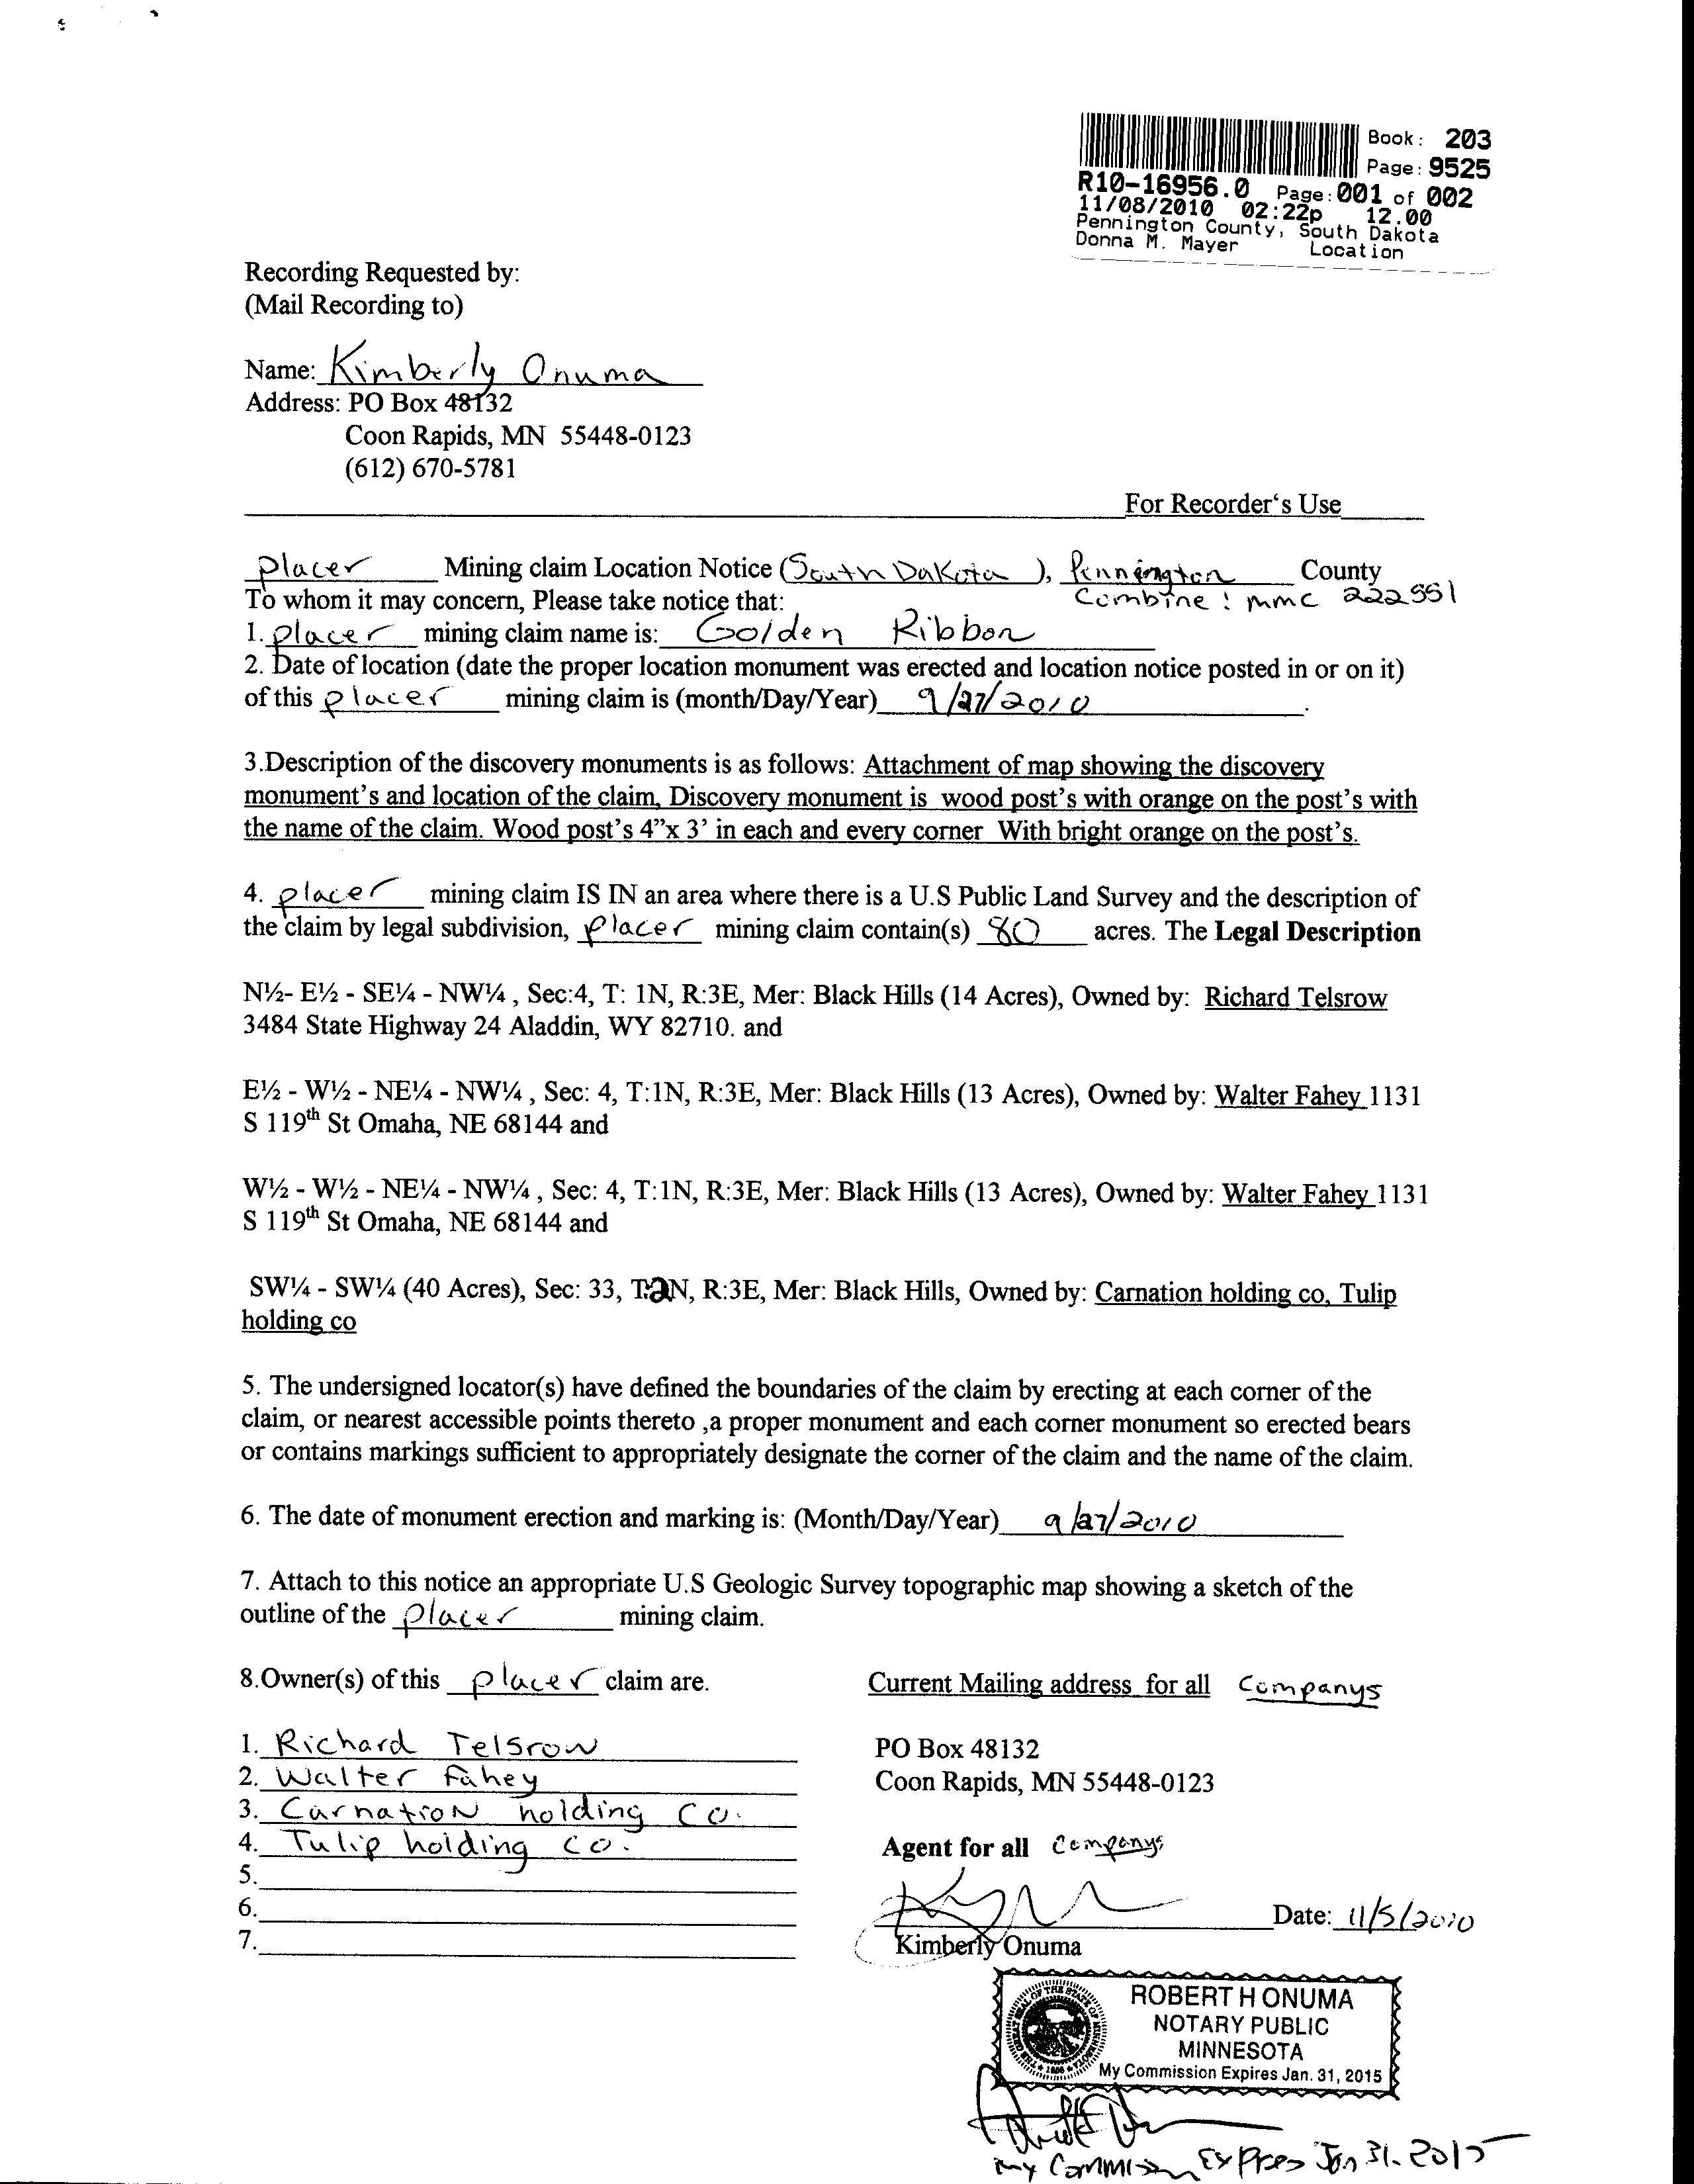 Book: 203
Page: 9525
R10-16956.0 Page: 001 of 002
11/08/2010 02:22p 12.00
Pennington County, South Dakota
Donna M. Mayer Location
Recording Requested by:
(Mail Recording to)
Name: Kimberly Onuma
Address: PO Box 48132
Coon Rapids, MN 55448-0123
(612) 670-5781
For Recorder's Use
placer Mining claim Location Notice (South Dakota), Pennington County
To whom it may concern, Please take notice that: Combine: mmc 222551
1. placer mining claim name is: Golden Ribbon
2. Date of location (date the proper location monument was erected and location notice posted in or on it)
of this placer mining claim is (month/Day/Year) 9/27/2010.
3.Description of the discovery monuments is as follows: Attachment of map showing the discovery
monument's and location of the claim, Discovery monument is wood post's with orange on the post's with
the name of the claim. Wood post's 4”x 3’ in each and every corner With bright orange on the post's.
4. placer mining claim IS IN an area where there is a U.S Public Land Survey and the description of
the claim by legal subdivision, placer mining claim contain(s) 80 acres. The Legal Description
N½- E½ - SE¼ - NW¼ , Sec:4, T: 1N, R:3E, Mer: Black Hills (14 Acres), Owned by: Richard Telsrow
3484 State Highway 24 Aladdin, WY 82710. and
E½ - W½ - NE¼ - NW¼ , Sec: 4, T:1N, R:3E, Mer: Black Hills (13 Acres), Owned by: Walter Fahey 1131
S 119th St Omaha, NE 68144 and
W½ - W½ - NE¼ - NW¼ , Sec: 4, T:1N, R:3E, Mer: Black Hills (13 Acres), Owned by: Walter Fahey 1131
S 119th St Omaha, NE 68144 and
SW¼ - SW¼ (40 Acres), Sec: 33, T:2N, R:3E, Mer: Black Hills, Owned by: Carnation holding co, Tulip
holding co
5. The undersigned locator(s) have defined the boundaries of the claim by erecting at each corner of the
claim, or nearest accessible points thereto ,a proper monument and each corner monument so erected bears
or contains markings sufficient to appropriately designate the corner of the claim and the name of the claim.
6. The date of monument erection and marking is: (Month/Day/Year) 9/27/2010
7. Attach to this notice an appropriate U.S Geologic Survey topographic map showing a sketch of the
outline of the placer mining claim.
8.Owner(s) of this placer claim are.
1. Richard Telsrow
2. Walter Fahey
3. Carnation holding Co.
4. Tulip holding co.
5.
6.
7.
Current Mailing address for all Companys
PO Box 48132
Coon Rapids, MN 55448-0123
Agent for all Companys
Date: 11/5/2010
Kimberly Onuma
ROBERT H ONUMA
NOTARY PUBLIC
MINNESOTA
My Commission Expires Jan. 31, 2015
my Commission Expires Jan 31. 2015